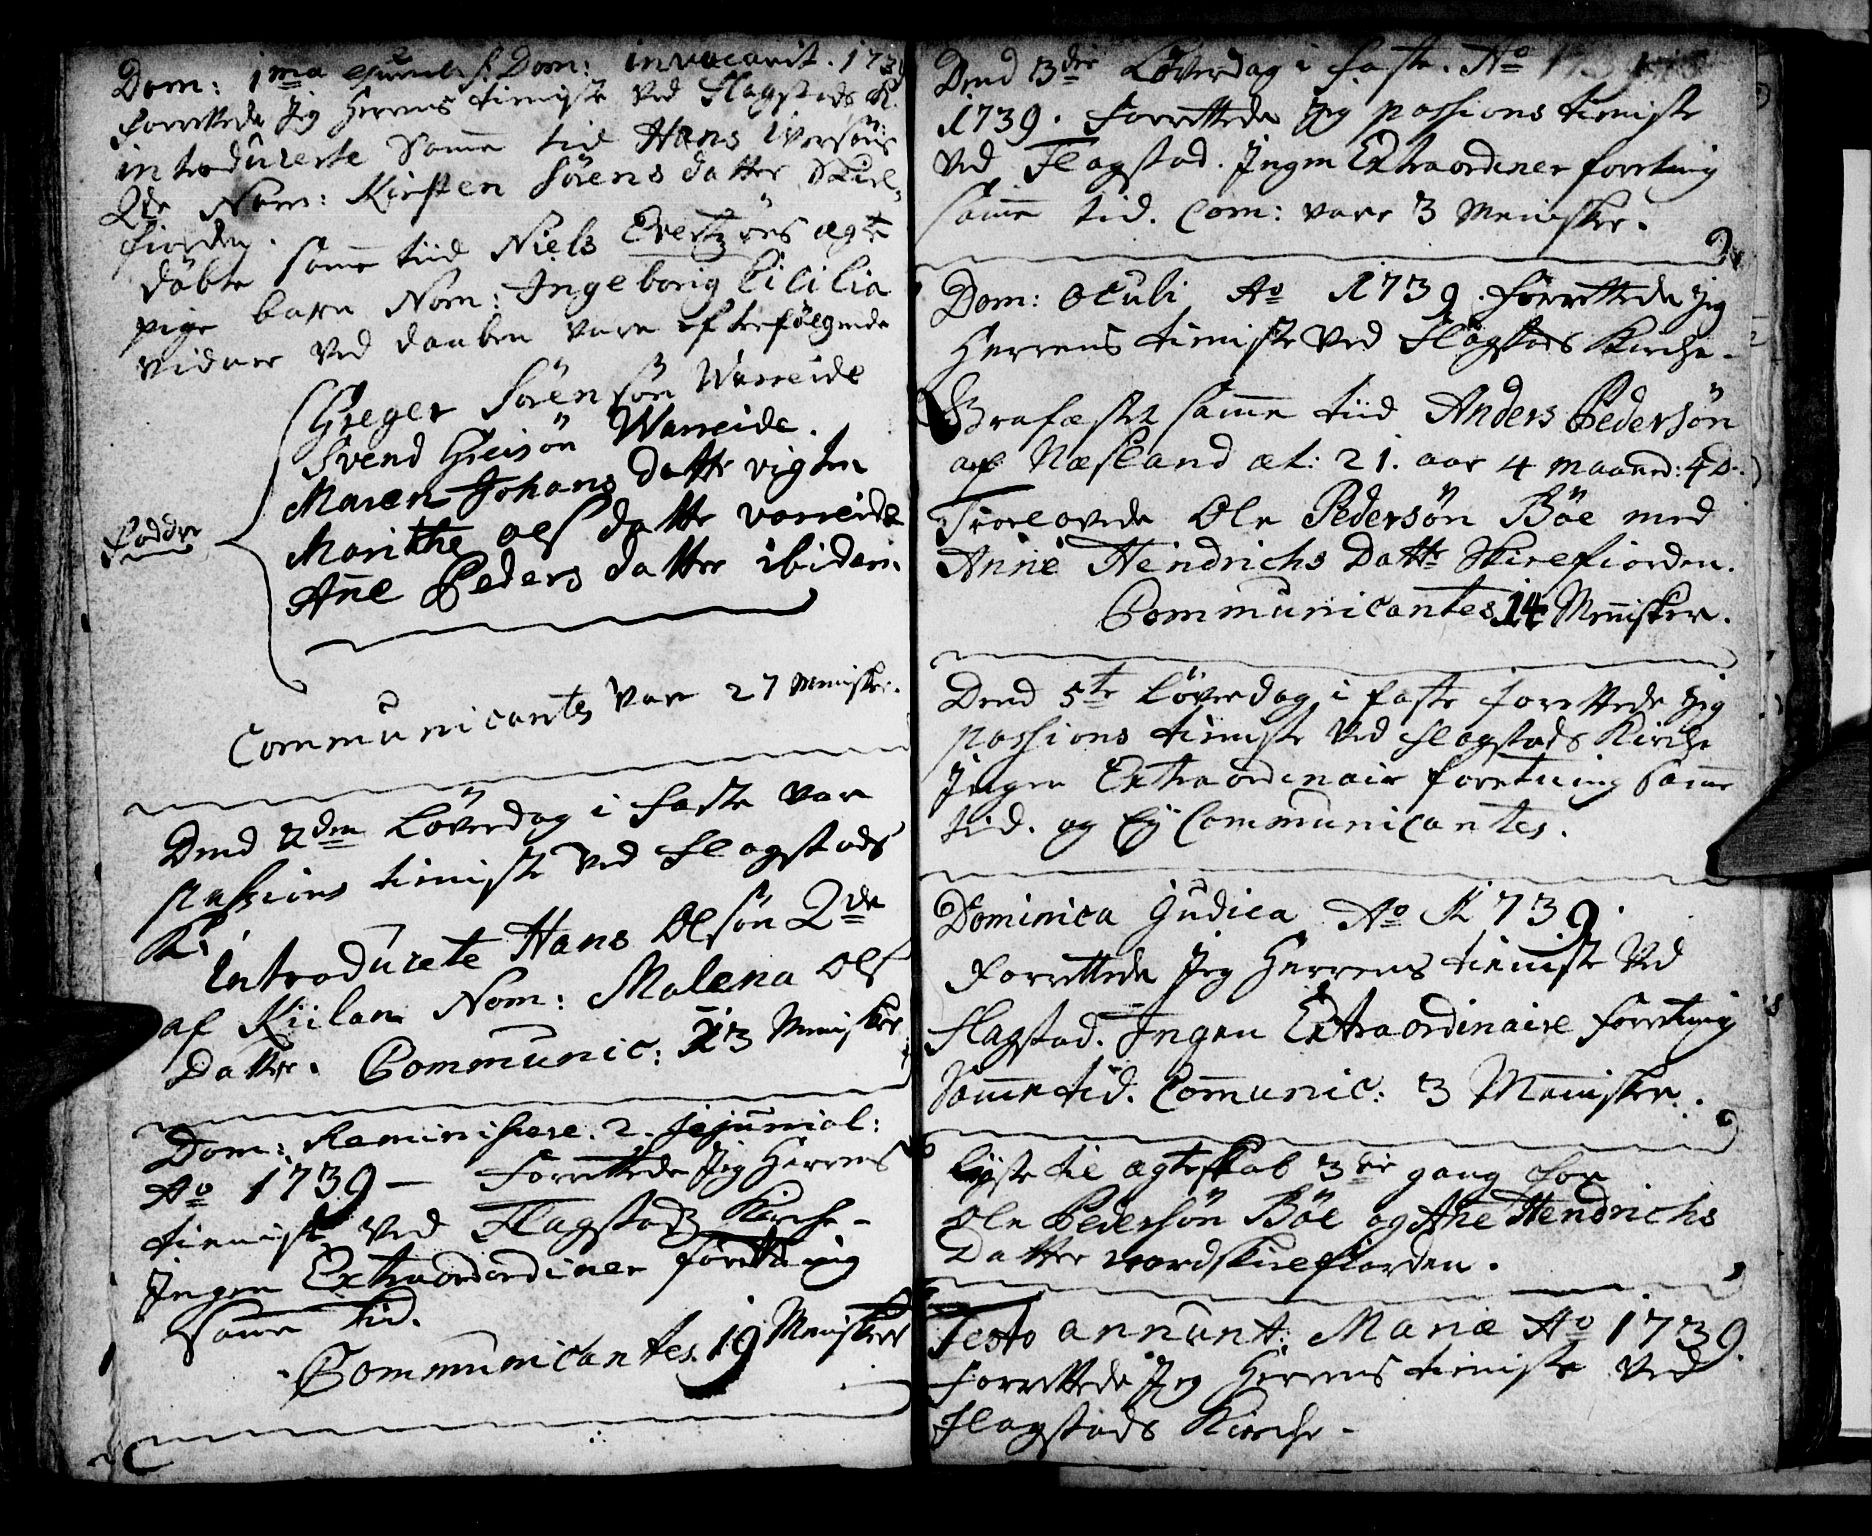 Dom: 1ma Dom: invocavit. 1739
forrettede Jeg Herrens tieniste ved Flagstads K.
introducerte Samme tid Hans Iversøns
Qde Nom: Kirsten Sørens datter Skiel-
fiorden.
døbte samme tiid Niels Evertzøns ægte
pige barn Nom: Ingeborig Cicilia
vidner ved daaben vare efterfølgende
Faddre
Greger Sørensøn Wareide
Svend Greisøn Wareide.
Maren Johans datter vigten
Marithe Ols datter vareide
Anne Peders datter ibidem.
Communicantes vare 27 Mennisker.
Dend 2den Løverdag i faste var
passions tieniste ved Flagstads
K:
Introducerte Hans Olsøn Qde
af Kiilan Nom: Malena Ols
Datter. Communic: 13 Mennisker
Dom: Reminiscere. 2. Jejunial:
Ao 1739 - Forrettede Jeg Herrens
tieniste ved Flagstads Kirche -
Ingen Extraordordiner forretning
samme tid.
Communicantes 19 Mennisker
Dend 3die Løverdag i faste. Ao
1739. Forrettede Jeg passions tieniste
ved Flagstad. Ingen Extraordiner forretning
samme tid. Com: vare 3 Mennisker.
Dom: Oculi Ao 1739. forrettede Jeg
Herrens tieniste ved Flagstads Kirche -
Grafæstet samme tiid Anders Pedersøn
af Næsland æt: 21. aar 4 maaned: 4 D.
Troelovede Ole Pedersøn Böe med
Anne Hendrichs Datter Skielfiorden.
Communicantes 14 Mennisker.
Dend 5te Løverdag i faste forrettede Jeg
passions tieniste ved Flagstads Kirche
Ingen Extraordinair forretning samme
tid. og Ey Communicantes.
Dominica Judica Ao 1739.
Forrettede Jeg Herrens tieniste ved
Flagstad. Ingen Extraordinaire forretning
Samme tid. Communic: 3 Mennisker.
Lyste til ægteskab 3die gang for
Ole Pedersøn Böe og Ane Hendrichs
Datter nordskielfiorden.
Festo annunt: Mariæ Ao 1739.
Forrettede Jeg Herrens tieniste ved
Flagstads Kirche -